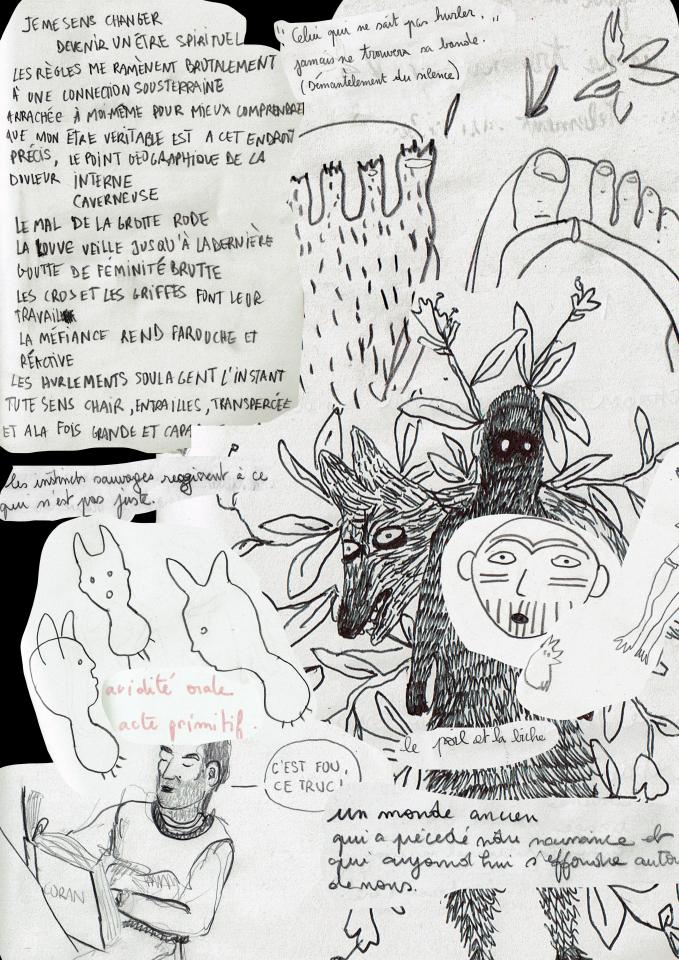 JE ME SENS CHANGER
DEVENIR UN ÊTRE SPIRITUEL
LES RÈGLES ME RAMÈNENT BRUTALEMENT
À UNE CONNECTION SOUSTERRAINE
ARRACHÉE À MOI-MÊME POUR MIEUX COMPRENDRE
QUE MON ÊTRE VÉRITABLE EST A CET ENDROIT
PRÉCIS, LE POINT GÉOGRAPHIQUE DE LA
DOULEUR INTERNE
CAVERNEUSE
LE MAL DE LA GROTTE RODE
LA LOUVE VEILLE JUSQU'À LA DERNIÈRE
GOUTTE DE FÉMINITÉ BRUTTE
LES CROS ET LES GRIFFES FONT LEUR
TRAVAIL
LA MÉFIANCE REND FAROUCHE ET
RÉACTIVE
LES HURLEMENTS SOULAGENT L'INSTANT
TU TE SENS CHAIR, ENTRAILLES, TRANSPERCÉE
ET A LA FOIS GRANDE ET CAPA
"Celui qui ne sait pas hurler,"
jamais ne trouvera sa bande.
(Démantèlement du silence)
les instincts sauvages reagissent à ce
qui n'est pas juste.
avidité orale
acte primitif.
le poil et la biche
C'EST FOU,
CE TRUC!
CORAN
un monde ancien
qui a précédé nôtre naissance et
qui aujourd'hui s'effondre autour
de nous.